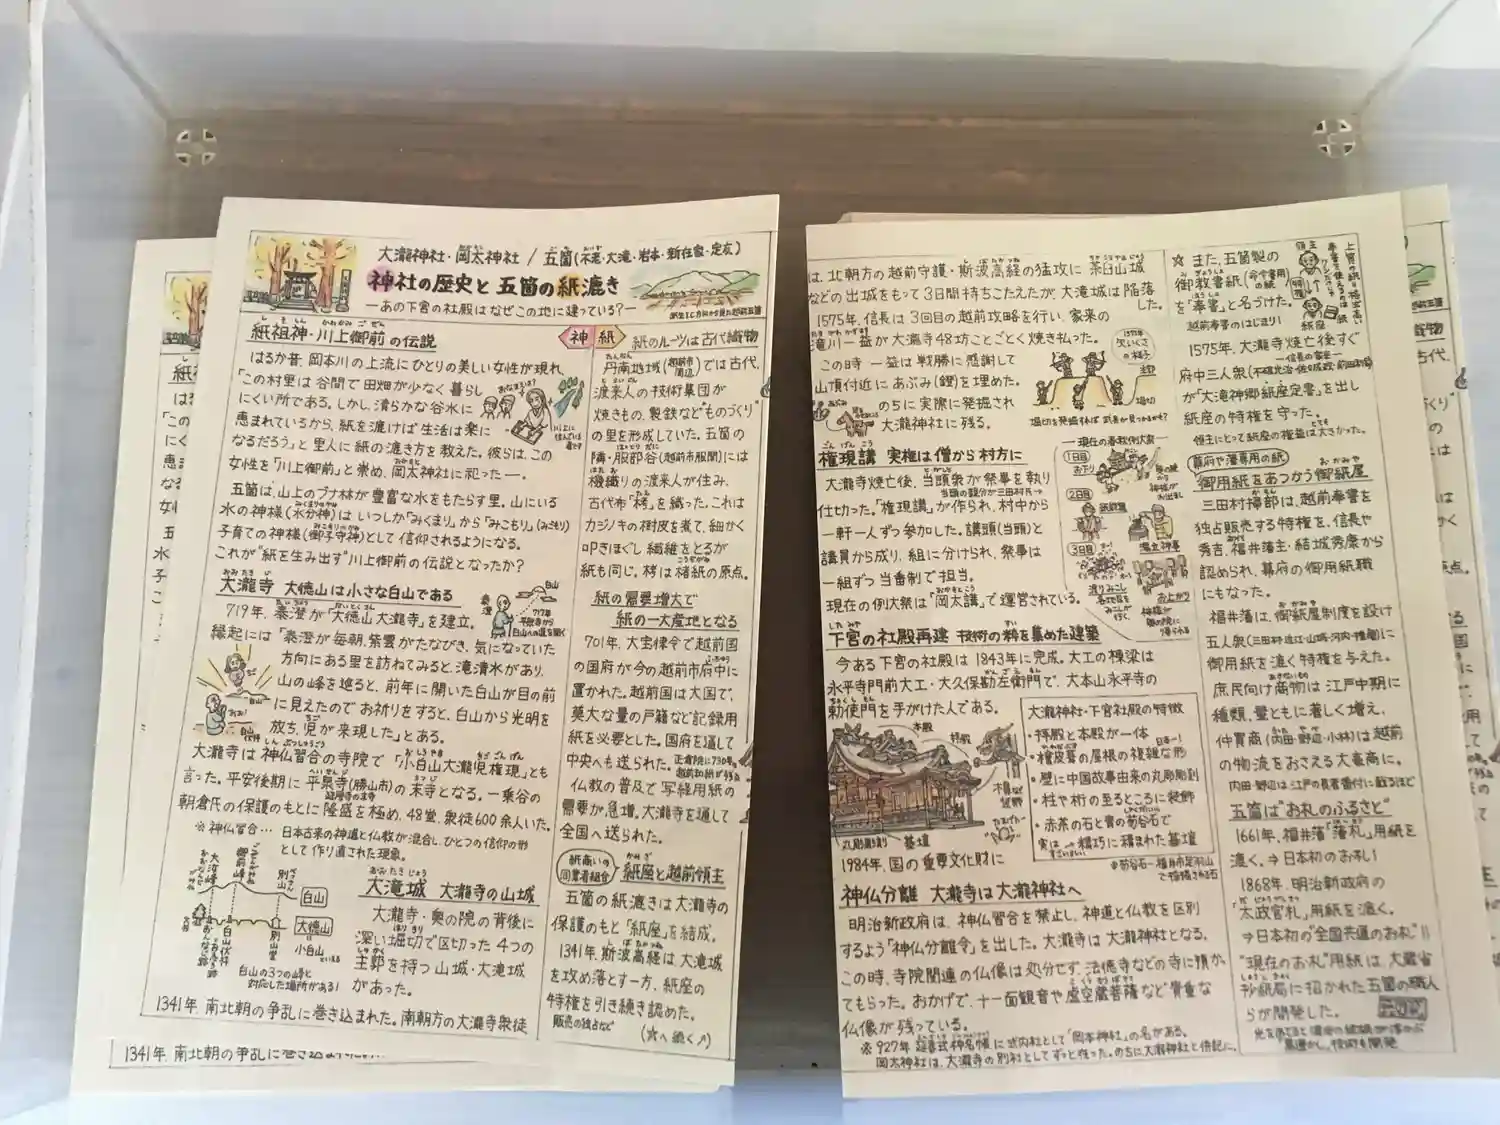 大瀧神社・岡太神社 / 五箇(不老・大滝・岩本・新在家・定友)
神社の歴史と五箇の紙漉き
―あの下宮の社殿はなぜこの地に建っている?―
紙祖神・川上御前の伝説
はるか昔、岡本川の上流にひとりの美しい女性が現れ、
「この村里は谷間で田畑が少なく暮らし
にくい所である。しかし清らかな谷水に
恵まれているから、紙を漉けば生活は楽に
なるだろう」と里人に紙の漉き方を教えた。彼らは、この
女性を「川上御前」と崇め、岡太神社に祀った―。
五箇は、山上のブナ林が豊富な水をもたらす里。山にいる
水の神様(水分神)はいつしか「みくまり」から「みこもり」(みごもり)
子育ての神様(御子守神)として信仰されるようになる。
これが"紙を生み出す"川上御前の伝説となったか?
大瀧寺 大徳山は小さな白山である
719年、泰澄が「大徳山大瀧寺」を建立。
縁起には「泰澄が毎朝、紫雲がたなびき、気になっていた
方向にある里を訪ねてみると、滝清水があり、
山の峰を巡ると、前年に開いた白山が目の前
に見えたのでお祈りをすると、白山から光明を
放ち、児が来現した」とある。
大瀧寺は神仏習合の寺院で「小白山大瀧児権現」とも
言った。平安後期に平泉寺(勝山市)の末寺となる。一乗谷の
朝倉氏の保護のもとに隆盛を極め、48堂、衆徒600余人いた。
※神仏習合… 日本古来の神道と仏教が混合し、ひとつの信仰の形
として作り直された現象。
白山
大徳山
小白山
白山の3つの峰と
対応した場所がある!
大滝城 大瀧寺の山城
大瀧寺・奥の院の背後に
深い堀切で区切った4つの
主郭を持つ山城・大滝城
があった。
1341年、南北朝の争乱に巻き込まれた。南朝方の大瀧寺衆徒
神 紙
紙のルーツは古代織物
丹南地域(越前市周辺)では古代、
渡来人の技術集団が
焼きもの、製鉄など"ものづくり"
の里を形成していた。五箇の
隣・服部谷(越前市服間)には
機織りの渡来人が住み、
古代布"栲"を織った。これは
カジノキの樹皮を煮て、細かく
叩きほぐし繊維をとるが
紙も同じ。栲は楮紙の原点。
紙の需要増大で
紙の一大産地となる
701年、大宝律令で越前国
の国府が今の越前市府中に
置かれた。越前国は大国で、
莫大な量の戸籍など記録用
紙を必要とした。国府を通して
中央へも送られた。
仏教の普及で写経用紙の
需要が急増。大瀧寺を通して
全国へ送られた。
紙商いの同業者組合
紙座と越前領主
五箇の紙漉きは大瀧寺の
保護のもと「紙座」を結成。
1341年、斯波高経は大滝城
を攻め落とす一方、紙座の
特権を引き続き認めた。
販売の独占など
(☆へ続く↗)
は、北朝方の越前守護・斯波高経の猛攻に茶臼山城
などの出城をもって3日間持ちこたえたが、大滝城は陥落
した。
1575年、信長は3回目の越前攻略を行い、家来の
滝川一益が大瀧寺48坊ことごとく焼き払った。
この時一益は戦勝に感謝して
山頂付近にあぶみ(鐙)を埋めた。
のちに実際に発掘され
大瀧神社に残る。
権現講 実権は僧から村方に
大瀧寺焼亡後、当頭衆が祭事を執り
仕切った。「権現講」が作られ、村中から
一軒一人ずつ参加した。講頭(当頭)と
講員から成り、組に分けられ、祭事は
一組ずつ当番制で担当。
現在の例大祭は「岡太講」で運営されている。
―現在の春秋例大祭―
1日目
お下り
2日目
紙能舞
湯立神事
3日目
お上がり
下宮の社殿再建 技術の粋を集めた建築
今ある下宮の社殿は1843年に完成。大工の棟梁は
永平寺門前大工・大久保勘左衛門で、大本山永平寺の
勅使門を手がけた人である。
本殿
拝殿
丸彫彫り
基壇
大瀧神社・下宮社殿の特徴
・拝殿と本殿が一体
・檜皮葺の屋根の複雑な形
日本一!
・壁に中国故事由来の丸彫彫刻
・柱や桁の至るところに装飾
・赤茶の石と青の笏谷石で
実は→精巧に積まれた基壇
※笏谷石―福井市足羽山
で採掘される石
1984年、国の重要文化財に
神仏分離 大瀧寺は大瀧神社へ
明治新政府は、神仏習合を禁止し、神道と仏教を区別
するよう「神仏分離令」を出した。大瀧寺は大瀧神社となる。
この時、寺院関連の仏像は処分せず、法徳寺などの寺に預か
てもらった。おかげで、十一面観音や虚空蔵菩薩など貴重な
仏像が残っている。
※927年延喜式神名帳に式内社として「岡本神社」の名がある。
岡太神社は、大瀧寺の別社としてずっと在った。のちに大瀧神社と併記に。
☆また、五箇製の
御教書紙(命令書用の紙)
を「奉書」と名づけた。
越前奉書のはじまり!
1575年、大瀧寺焼亡後すぐ
―信長の家臣―
府中三人衆(不破光治・佐々成政・前田利家)
が「大滝神郷紙座定書」を出し
紙座の特権を守った。
領主にとって紙座の権益は大きかった。
幕府や藩専用の紙
御用紙をあつかう御紙屋
三田村掃部は、越前奉書を
独占販売する特権を、信長や
秀吉、福井藩主・結城秀康から
認められ、幕府の御用紙職
にもなった。
福井藩は、御紙屋制度を設け
五人衆(三田村・近江・山城・河内・播磨)に
御用紙を漉く特権を与えた。
庶民向け商物は江戸中期に
種類、量ともに著しく増え、
仲買商(内田・野辺・小林)は越前
の物流をおさえる大豪商に。
内田・野辺は江戸の長者番付に載るほど
五箇は"お札のふるさと"
1661年、福井藩「藩札」用紙を
漉く。⇒日本初のお札!
1868年、明治新政府の
「太政官札」用紙を漉く。
⇒日本初の"全国共通のお札"!!
"現在のお札"用紙は、大蔵省
抄紙局に招かれた五箇の職人
らが開発した。
1341年、南北朝の争乱に巻き込まれた